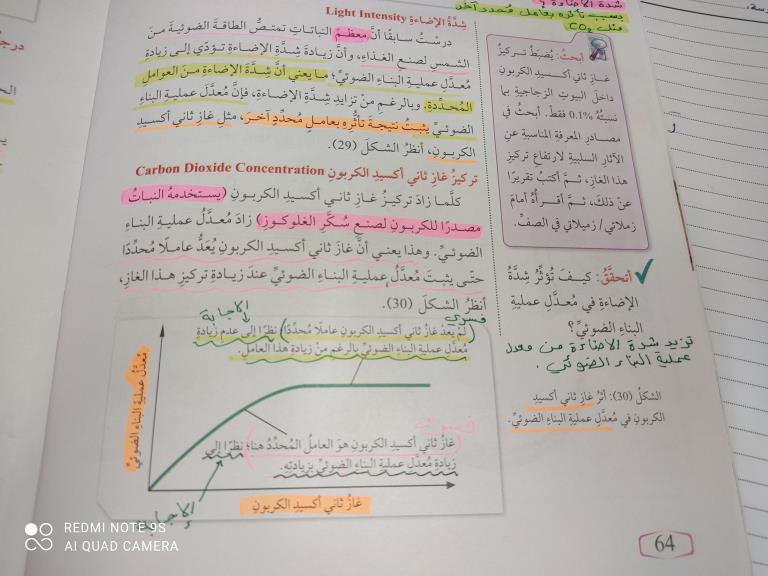 شدة الاضاءة ؟
بسبب تأثره بعامل محدد آخر
مثل CO₂
شدَّةُ الإضاءةِ Light Intensity
درسْتُ سابقًا أنَّ معظمَ النباتاتِ تمتصُّ الطاقةَ الضوئيةَ منَ
الشمسِ لصنعِ الغذاءِ، وأنَّ زيادةَ شدَّةِ الإضاءةِ تؤدّي إلى زيادةِ
مُعدَّلِ عمليةِ البناءِ الضوئيِّ؛ ما يعني أنَّ شدَّةَ الإضاءةِ منَ العواملِ
المُحدِّدةِ. وبالرغمِ منْ تزايدِ شدَّةِ الإضاءةِ، فإنَّ مُعدَّلَ عمليةِ البناءِ
الضوئيِّ يثبتُ نتيجةَ تأثُّرِهِ بعاملٍ مُحدِّدٍ آخرَ، مثلِ غازِ ثاني أكسيدِ
الكربونِ، أنظرُ الشكلَ (29).
تركيزُ غازِ ثاني أكسيدِ الكربونِ Carbon Dioxide Concentration
كلَّما زادَ تركيزُ غازِ ثاني أكسيدِ الكربونِ (يستخدمهُ النباتُ
مصدرًا للكربونِ لصنعِ سُكَّرِ الغلوكوزِ) زادَ مُعدَّلُ عمليةِ البناءِ
الضوئيِّ. وهذا يعني أنَّ غازَ ثاني أكسيدِ الكربونِ يُعَدُّ عاملًا مُحدِّدًا
حتّى يثبتَ مُعدَّلُ عمليةِ البناءِ الضوئيِّ عندَ زيادةِ تركيزِ هذا الغازِ،
أنظرُ الشكلَ (30).
الاجابة
فسري
لمْ يَعُدْ غازُ ثاني أكسيدِ الكربونِ عاملًا مُحدِّدًا؛ نظرًا إلى عدمِ زيادةِ
مُعدَّلِ عمليةِ البناءِ الضوئيِّ بالرغمِ منْ زيادةِ هذا العاملِ.
مُعدَّلُ عمليةِ البناءِ الضوئيِّ
غازُ ثاني أكسيدِ الكربونِ هوَ العاملُ المُحدِّدُ هنا؛ نظرًا إلى
زيادةِ مُعدَّلِ عمليةِ البناءِ الضوئيِّ بزيادتِهِ.
الإجابة
غازُ ثاني أكسيدِ الكربونِ
أبحثُ: يُضبَطُ تركيزُ
غازِ ثاني أكسيدِ الكربونِ
داخلَ البيوتِ الزجاجيةِ بما
نسبتُهُ 0.1% فقطْ. أبحثُ في
مصادرِ المعرفةِ المناسبةِ عنِ
الآثارِ السلبيةِ لارتفاعِ تركيزِ
هذا الغازِ، ثمَّ أكتبُ تقريرًا
عنْ ذلكَ، ثمَّ أقرأُهُ أمامَ
زملائي/ زميلاتي في الصفِّ.
أتحقَّقُ: كيفَ تُؤثِّرُ شدَّةُ
الإضاءةِ في مُعدَّلِ عمليةِ
البناءِ الضوئيِّ؟
تزيد شدة الاضاءة من معدل
عملية البناء الضوئي .
الشكلُ (30): أثرُ غازِ ثاني أكسيدِ
الكربونِ في مُعدَّلِ عمليةِ البناءِ الضوئيِّ.
64
REDMI NOTE 9S
AI QUAD CAMERA